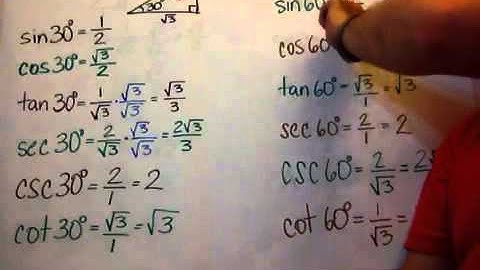 30°
√3
sin30° = 1/2
cos30° = √3/2
tan30° = 1/√3 · √3/√3 = √3/3
sec30° = 2/√3 · √3/√3 = 2√3/3
csc30° = 2/1 = 2
cot30° = √3/1 = √3
sin60
cos60°
tan60° = √3/1 = √3
sec60° = 2/1 = 2
csc60° = 2/√3 =
cot60° = 1/√3 =